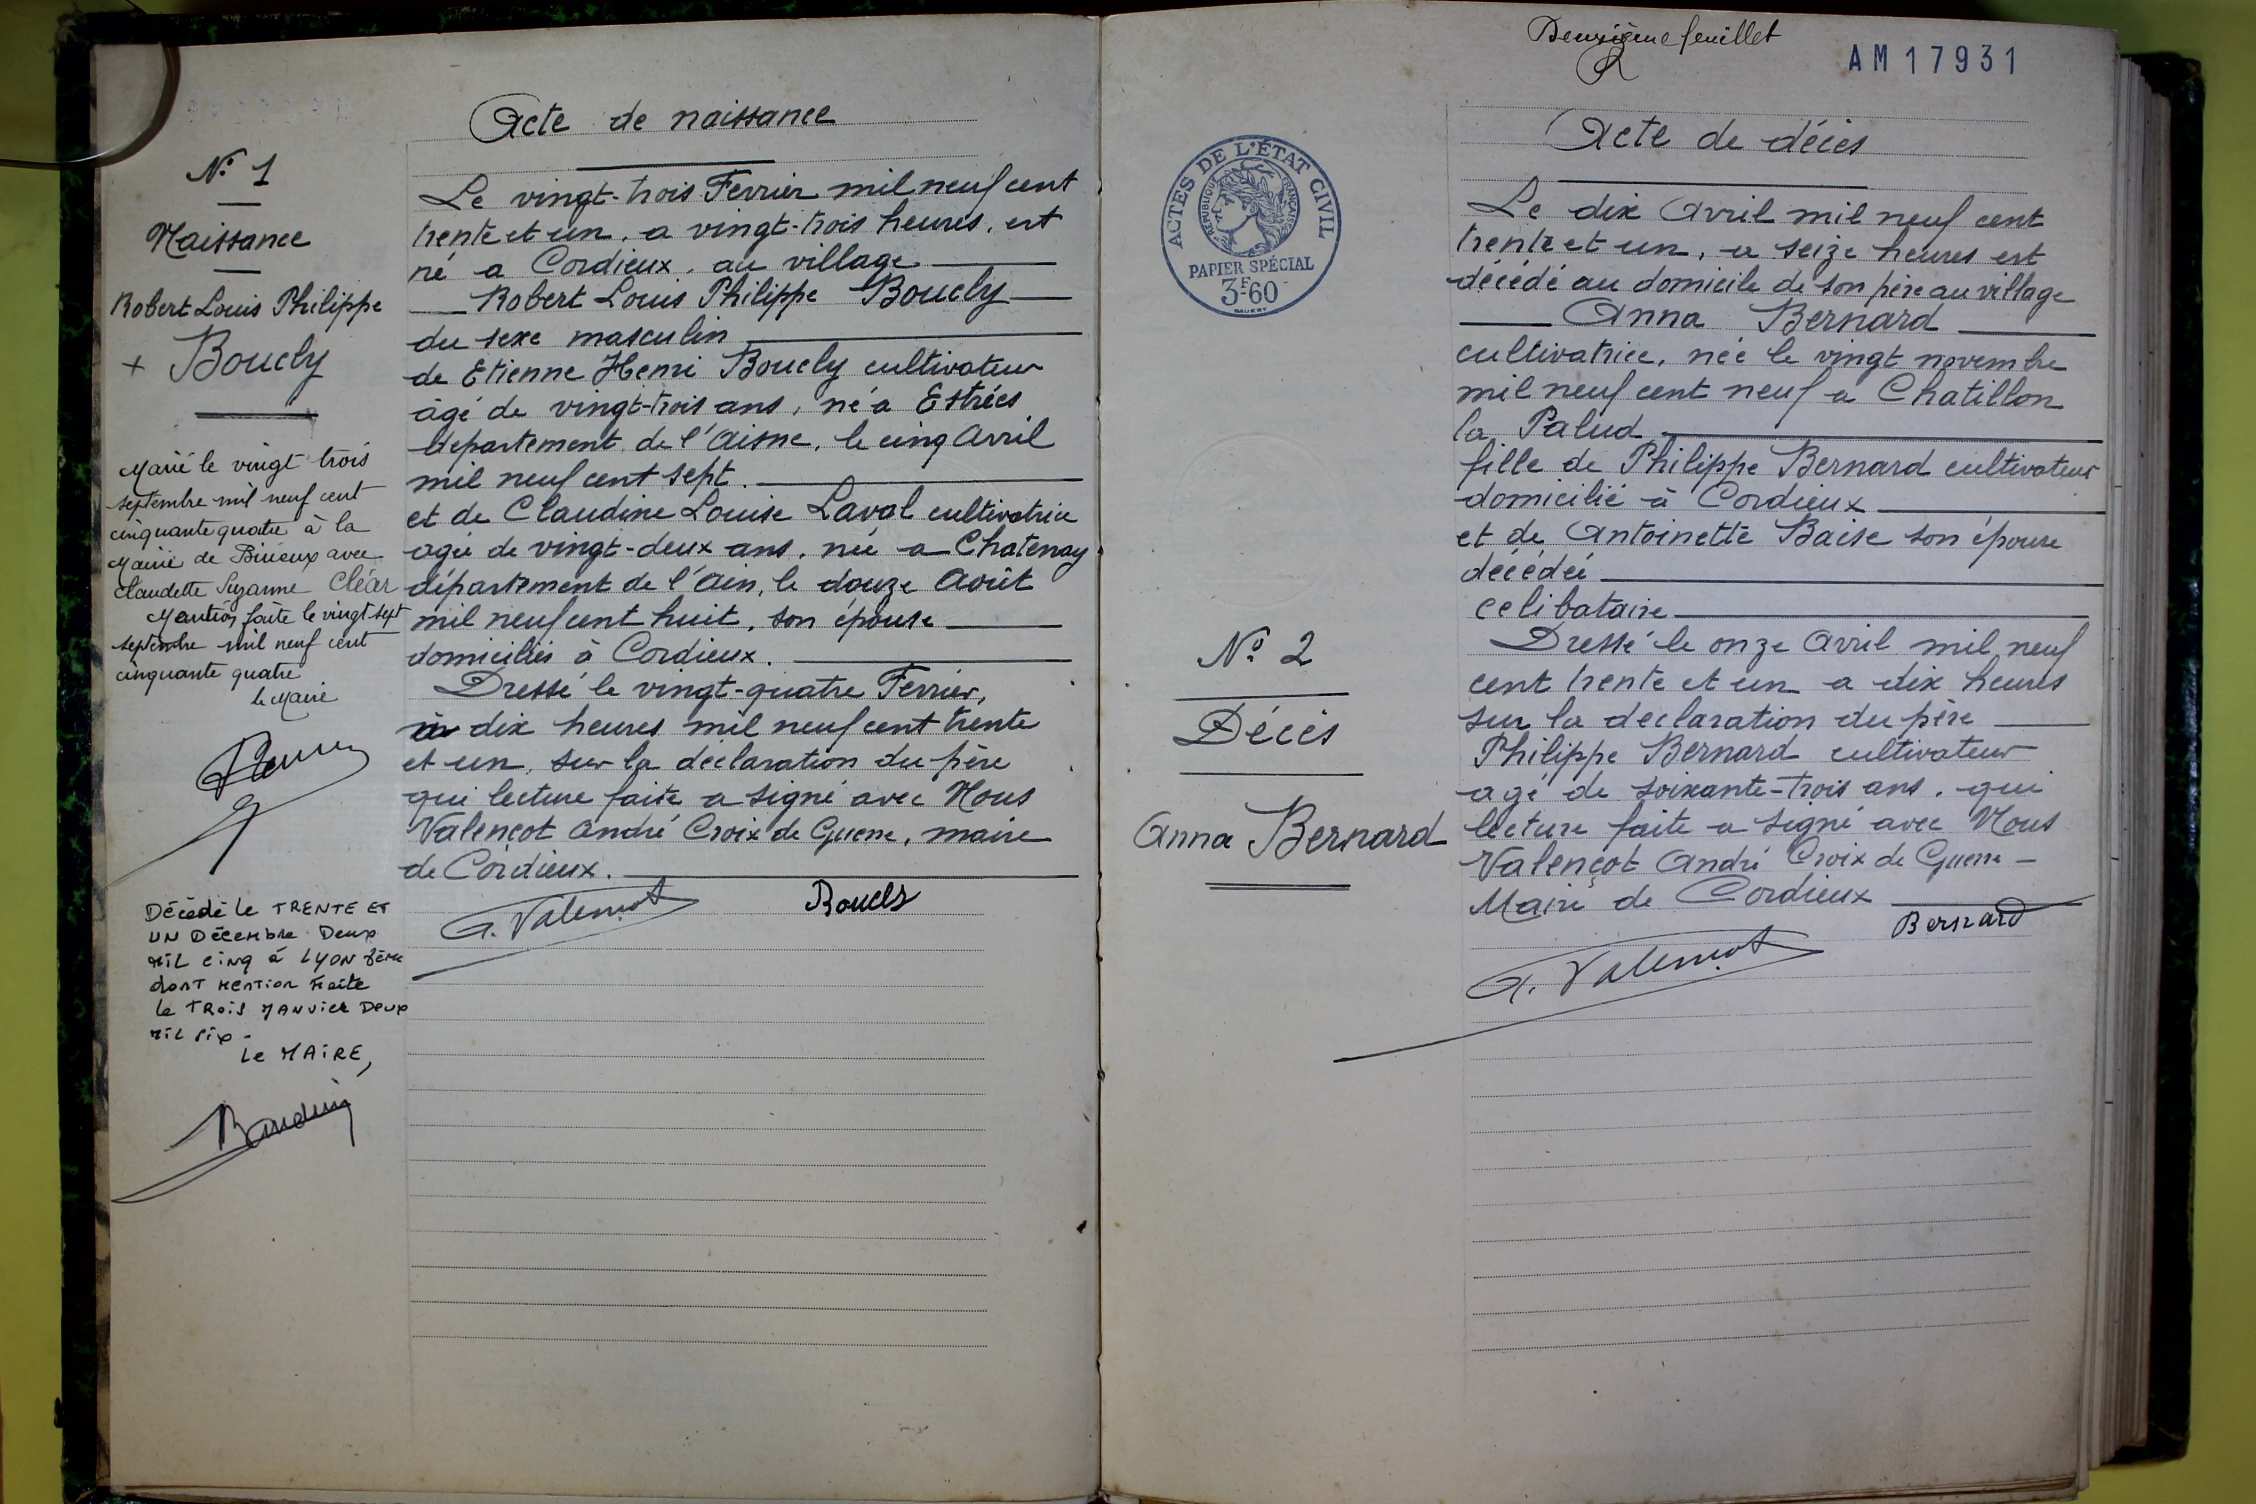 Acte de naissance
N° 1
Naissance
Robert Louis Philippe
+ Boucly
Marié le vingt trois
septembre mil neuf cent
cinquante quatre à la
Mairie de Birieux avec
Claudette Suzanne Cléar
Mention faite le vingt-sept
septembre mil neuf cent
cinquante quatre
le Maire
Décédé le TRENTE ET
UN Décembre Deux
MIL cinq à LYON 8ème
dont mention Faite
le TROIS JANVIER Deux
MIL Six -
Le MAIRE,
Le vingt-trois Fevrier mil neuf cent
trente et un, a vingt-trois heures, est
né a Cordieux, au village
Robert Louis Philippe Boucly
du sexe masculin
de Etienne Henri Boucly cultivateur
âgé de vingt-trois ans, né a Estrées
departement de l'Aisne, le cinq Avril
mil neuf cent sept.
et de Claudine Louise Laval cultivatrice
agée de vingt-deux ans, née a Chatenay
département de l'Ain, le douze Août
mil neuf cent huit, son épouse
domiciliés à Cordieux.
Dressé le vingt-quatre Fevrier,
à dix heures mil neuf cent trente
et un, sur la déclaration du père
qui lecture faite a signé avec Nous
Valençot André Croix de Guerre, maire
de Cordieux.
A. Valençot Boucly
Deuxième feuillet
AM17931
ACTES DE L'ÉTAT CIVIL
RÉPUBLIQUE FRANÇAISE
PAPIER SPÉCIAL
3F60
N° 2
Décès
Anna Bernard
Acte de décès
Le dix Avril mil neuf cent
trente et un, a seize heures est
décédé au domicile de son père au village
Anna Bernard
cultivatrice, née le vingt novembre
mil neuf cent neuf a Chatillon
la Palud
fille de Philippe Bernard cultivateur
domicilié à Cordieux
et de Antoinette Baise son épouse
décédée
celibataire
Dressé le onze Avril mil neuf
cent trente et un a dix heures
sur la declaration du père
Philippe Bernard cultivateur
agé de soixante-trois ans, qui
lecture faite a signé avec Nous
Valençot André Croix de Guerre -
Maire de Cordieux
Bernard
A. Valençot